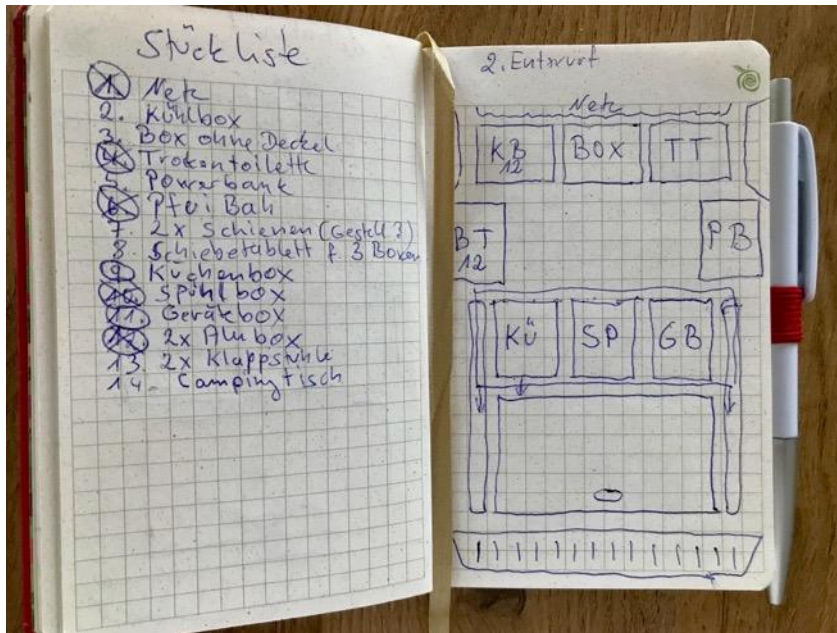 Stückliste
1. Netz
2. Kühlbox
3. Box ohne Deckel
4. Trokentoilette
5. Powerbank
6.
7. 2x Schienen (Gestell?)
8. Schiebetablett f. 3 Boxen
9. Küchenbox
10. Spühlbox
11. Gerätbox
12. 2x Alubox
13. 2x Klappstühle
14. Campingtisch
2. Entwurf
Netz
KB 12 BOX TT
BT 12 PB
KÜ SP GB